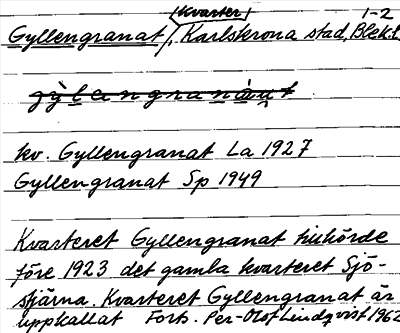 (Kvarter) 1-2
Gyllengranat, Karlskrona stad, Blek.l.
kv. Gyllengranat La 1927
Gyllengranat Sp 1949
Kvarteret Gyllengranat tillhörde
före 1923 det gamla kvarteret Sjö-
stjärna. Kvarteret Gyllengranat är
uppkallat Forts. Per-Olof Lindqvist 1962